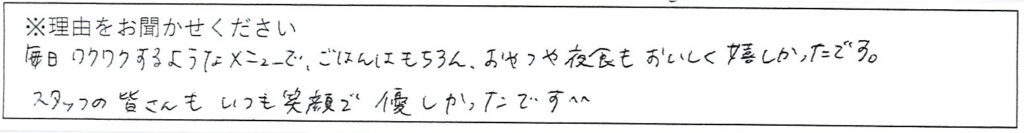 ※理由をお聞かせください
毎日ワクワクするようなメニューで、ごはんはもちろん、おやつや夜食もおいしく嬉しかったです。
スタッフの皆さんもいつも笑顔で優しかったです^^